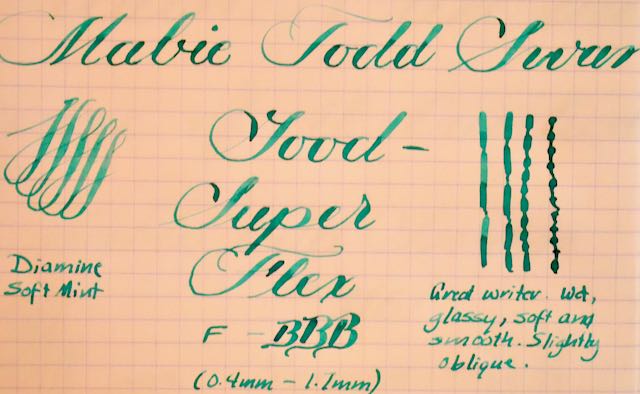 Mabie Todd Swan
Food-
Super
Flex
Diamine
Soft Mint
F - BBB
(0.4mm - 1.7mm)
Great writer. Wet,
glassy, soft and
smooth. Slightly
oblique.